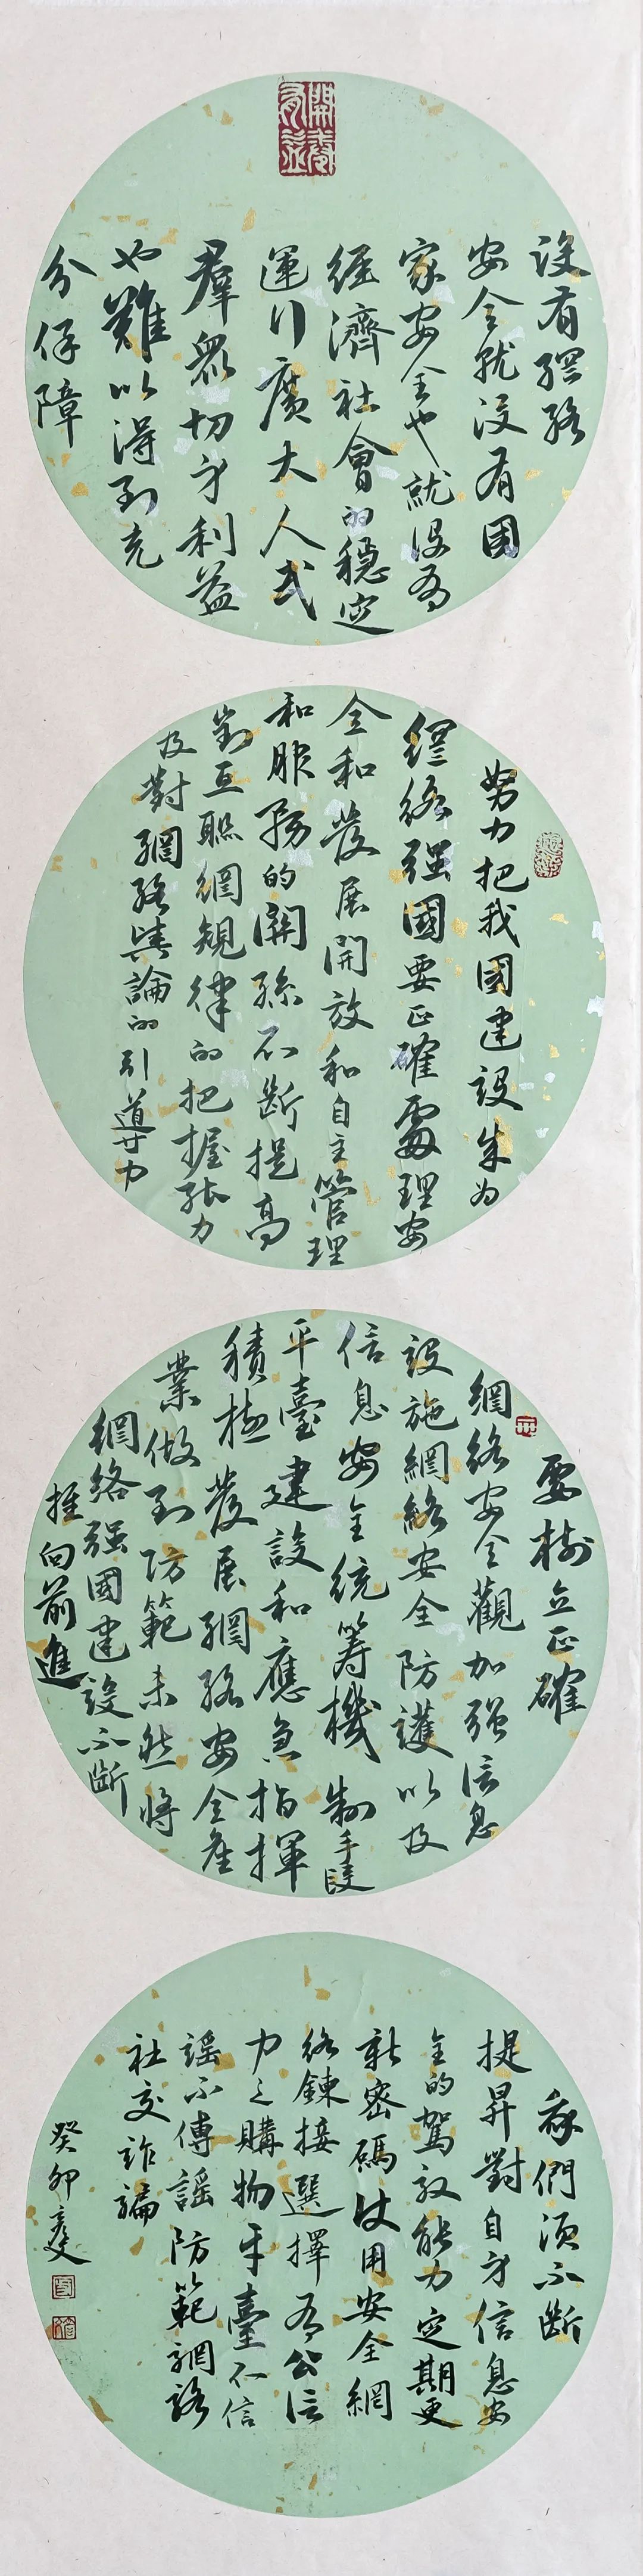 開卷有益
沒有網絡
安全就沒有國
家安全也就沒有
經濟社會的穩定
運行廣大人民
群眾切身利益
也難以得到充
分保障
努力把我國建設成為
網絡强國要正確處理安
全和發展開放和自主管理
和服務的關係不斷提高
對互聯網規律的把握能力
及對網絡輿論的引導力
要樹立正確
網絡安全觀加强信息
設施網絡安全防護以及
信息安全統籌機制手段
平臺建設和應急指揮
積極發展網絡安全產
業做到防範未然將
網絡强國建設不斷
推向前進
我們須不斷
提昇對自身信息安
全的駕馭能力定期更
新密碼使用安全網
絡鍊接選擇有公信
力之購物平臺不信
謠不傳謠防範網絡
社交詐騙
癸卯